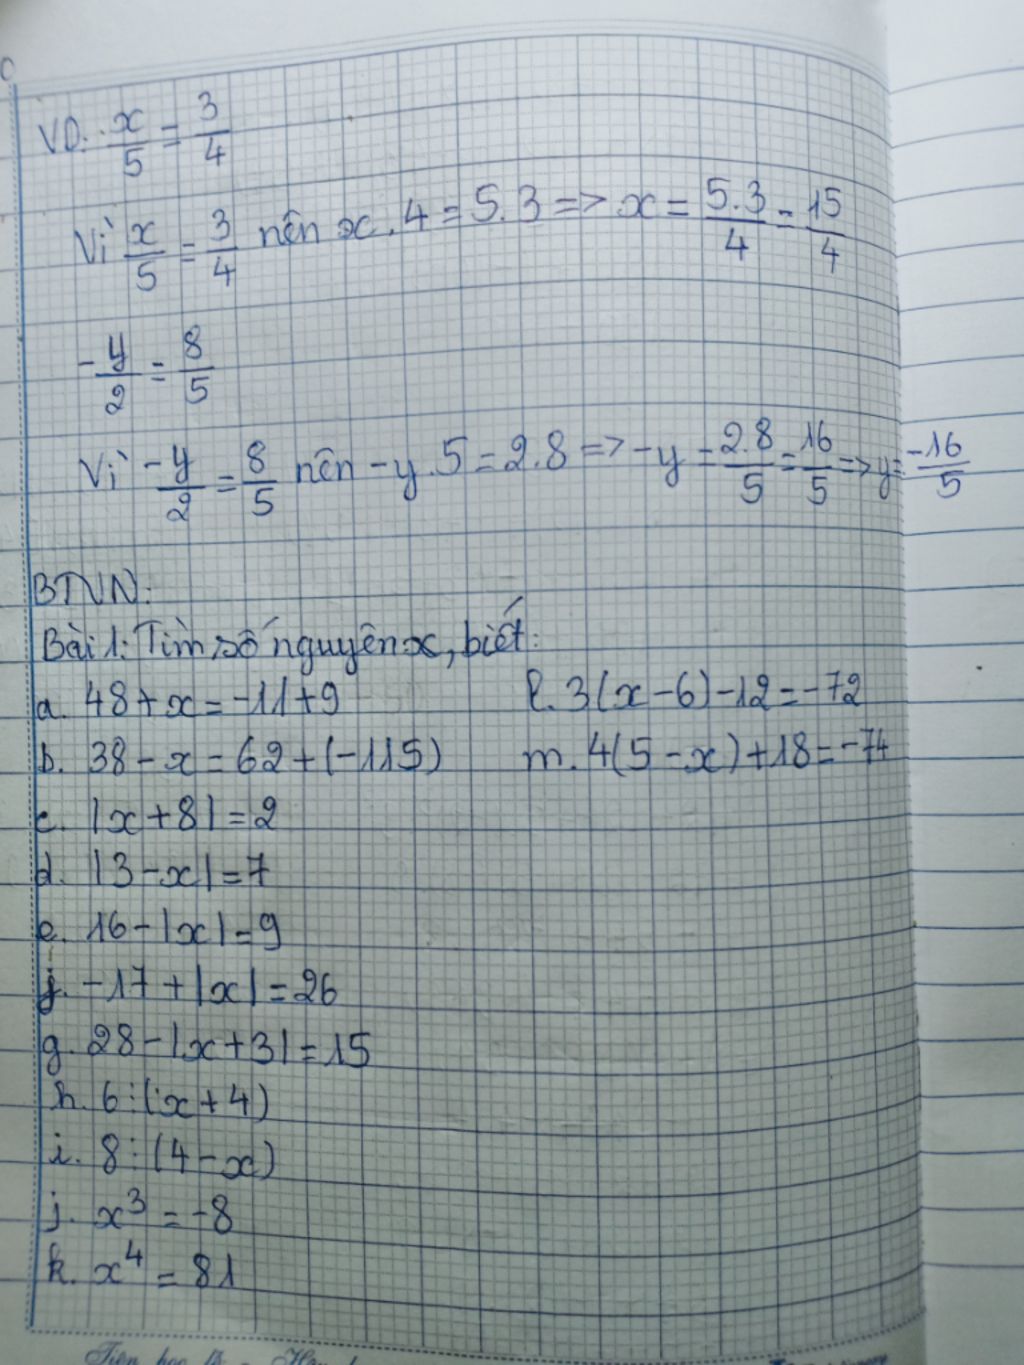 VD: x/5 = 3/4
Vì x/5 = 3/4 nên x . 4 = 5 . 3 => x = 5.3/4 = 15/4
-y/2 = 8/5
Vì -y/2 = 8/5 nên -y . 5 = 2 . 8 => -y = 2.8/5 = 16/5 => y = -16/5
BTVN:
Bài 1: Tìm số nguyên x, biết:
a. 48 + x = -11 + 9
l. 3(x - 6) - 12 = -72
b. 38 - x = 62 + (-115)
m. 4(5 - x) + 18 = -74
c. |x + 8| = 2
d. |3 - x| = 7
e. 16 - |x| = 9
f. -17 + |x| = 26
g. 28 - |x + 3| = 15
h. 6 ⋮ (x + 4)
i. 8 ⋮ (4 - x)
j. x³ = -8
k. x⁴ = 81
Tiên học